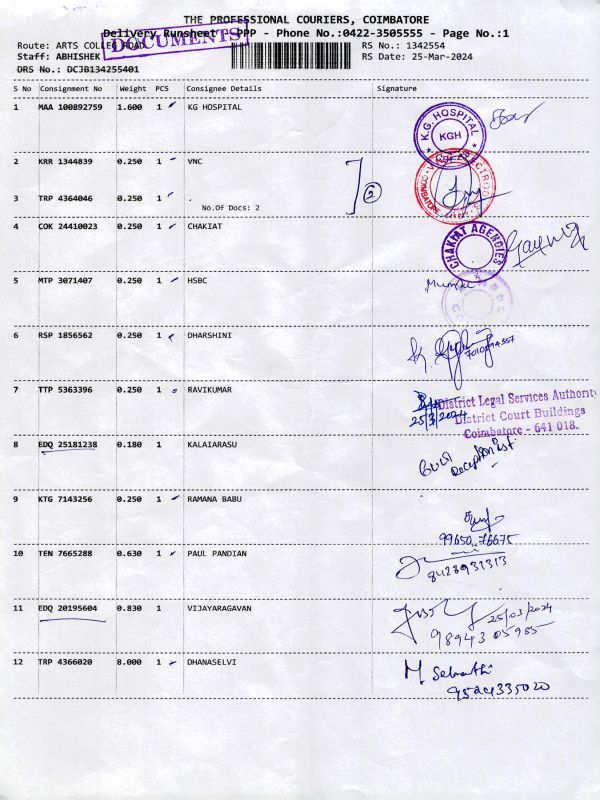 THE PROFESSIONAL COURIERS, COIMBATORE
Delivery Runsheet - PPP - Phone No.:0422-3505555 - Page No.:1
DOCUMENTS
Route: ARTS COLLEG ROAD RS No.: 1342554
Staff: ABHISHEK RS Date: 25-Mar-2024
DRS No.: DCJB134255401
S No Consignment No Weight PCS Consignee Details Signature
1 MAA 100892759 1.600 1 KG HOSPITAL
K.G. HOSPITAL
KGH
2 KRR 1344839 0.250 1 VNC
2
3 TRP 4364046 0.250 1 .
No.Of Docs: 2
4 COK 24410023 0.250 1 CHAKIAT
CHAKIAT AGENCIES
5 MTP 3071407 0.250 1 HSBC
6 RSP 1856562 0.250 1 DHARSHINI
7 TTP 5363396 0.250 1 RAVIKUMAR
25/3/2024
District Legal Services Authority
District Court Buildings
Coimbatore - 641 018.
8 EDQ 25181238 0.180 1 KALAIARASU
Receptionist
9 KTG 7143256 0.250 1 RAMANA BABU
99650 76675
10 TEN 7665288 0.630 1 PAUL PANDIAN
8428931313
11 EDQ 20195604 0.830 1 VIJAYARAGAVAN
25/03/2024
98943 05985
12 TRP 4366020 8.000 1 DHANASELVI